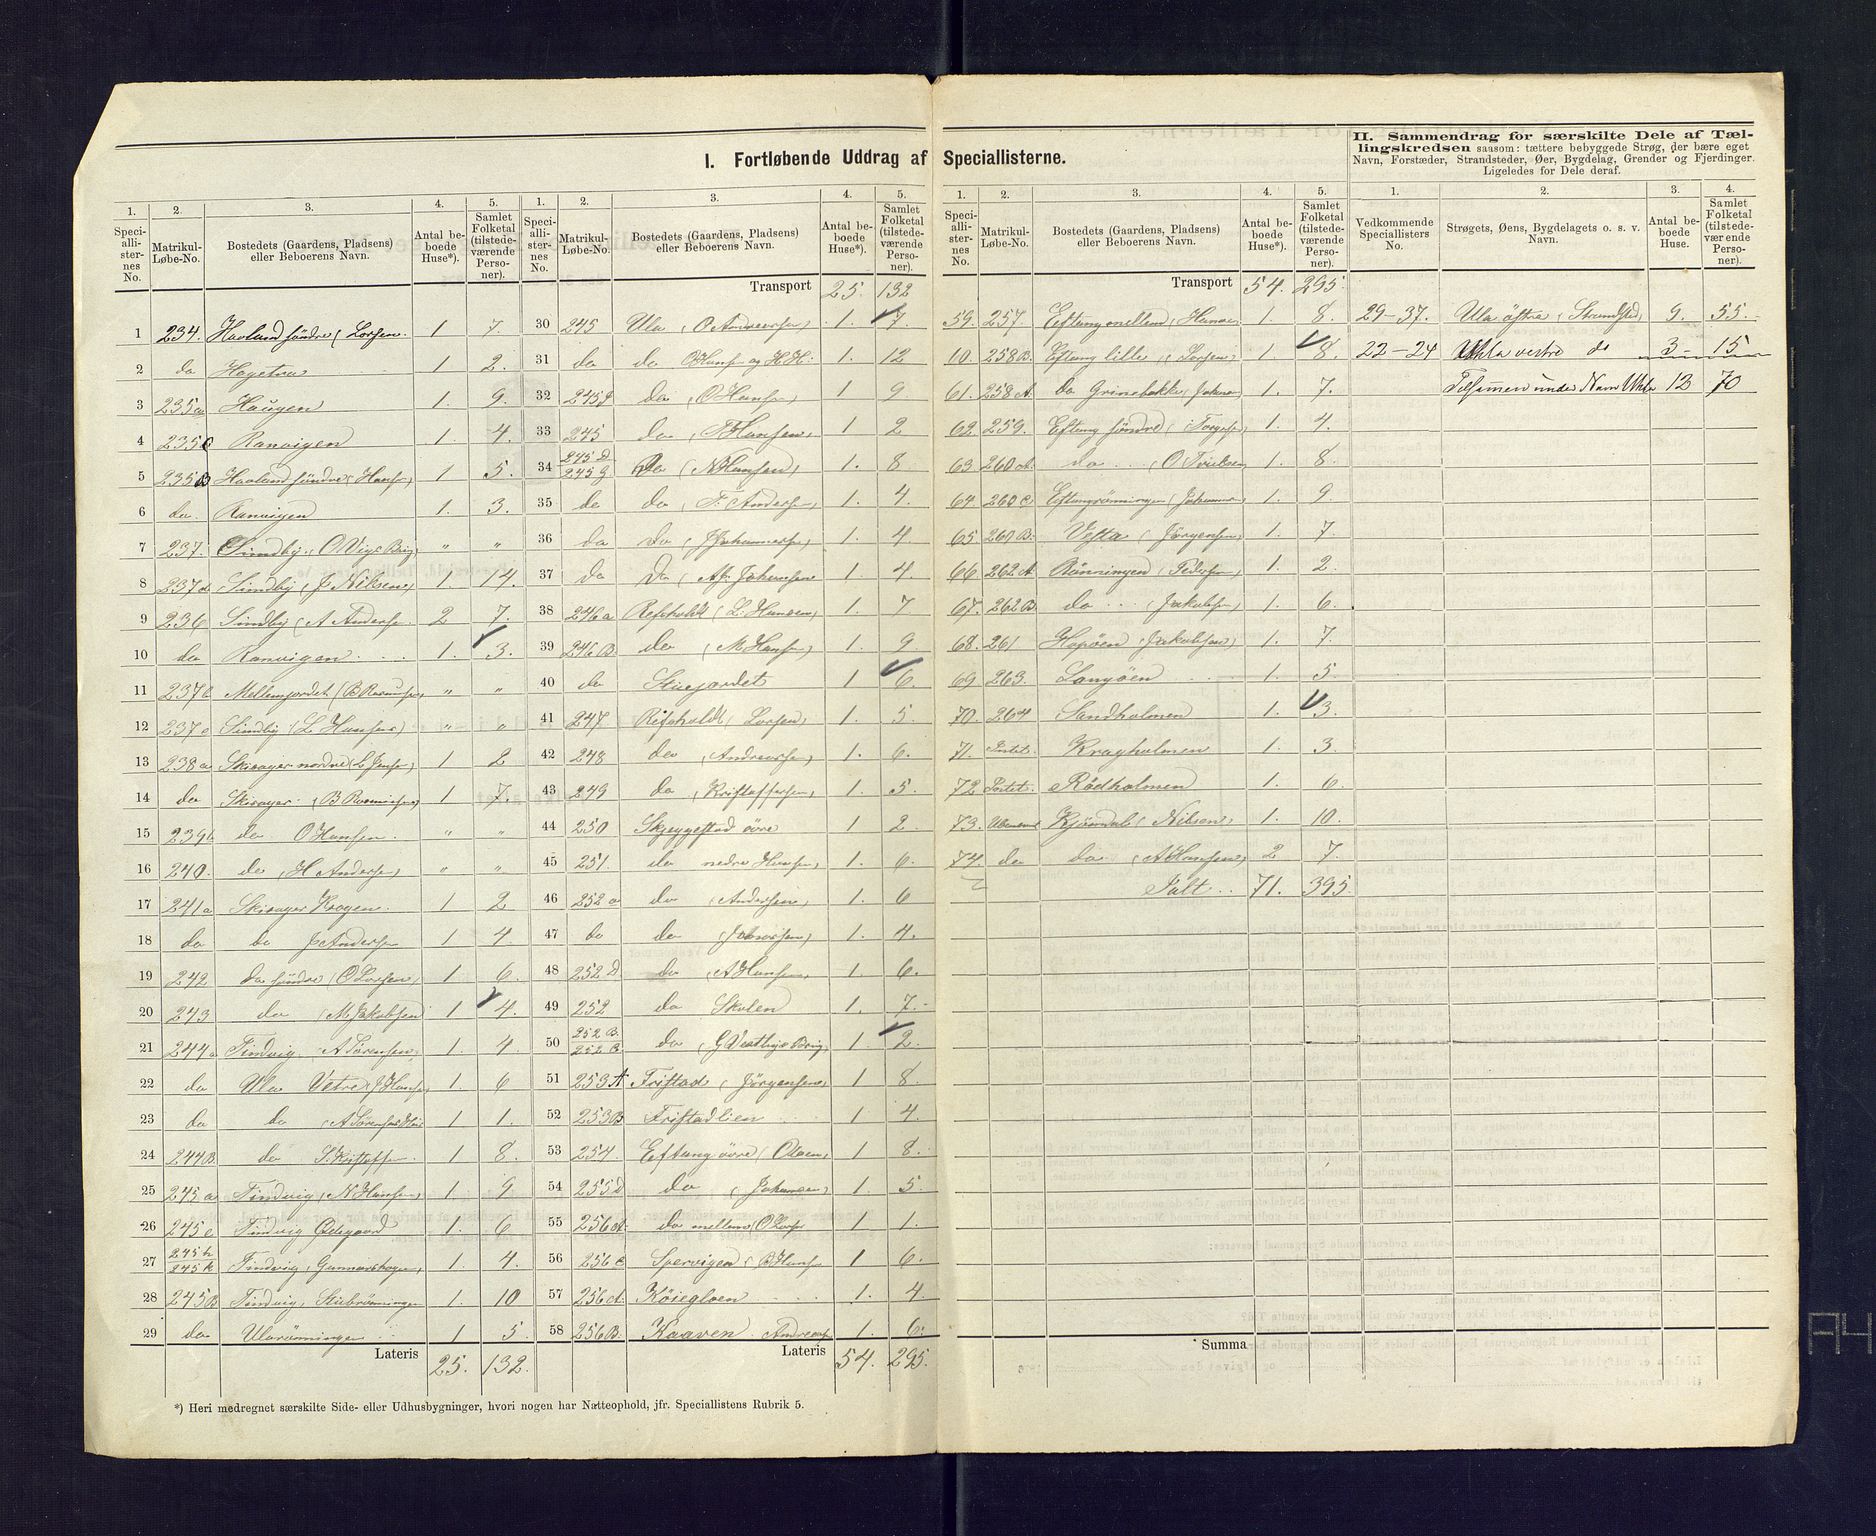 I. Fortløbende Uddrag af Speciallisterne.
II. Sammendrag for særskilte Dele af Tællingskredsen saasom: tættere bebyggede Strøg, der bære eget Navn, Forstæder, Strandsteder, Øer, Bygdelag, Grender og Fjerdinger. Ligeledes for Dele deraf.
1. 2. 3. 4. 5.
Speciallisternes No. Matrikul-Løbe-No. Bostedets (Gaardens, Pladsens) eller Beboerens Navn. Antal beboede Huse*). Samlet Folketal (tilstedeværende Personer).
1 234. Havland söndre (Larsen 1 7.
2 do Hagetra 1 2.
3 235a Haugen 1. 9.
4 235c Ranvigen 1. 4.
5 235B Havland söndre (Hansen) 1 5.
6 do. Ranvigen 1. 3.
7 237. Lindby. " "
8 237d Lindby (J Nilsen) 1. 14.
9 236 Lindby (A Andersen 2 7.
10 do Ranvigen 1. 3.
11 237 Mellemjordet " "
12 237 Lindby (L Hansen) " "
13 238a Skisager nordre (L Jensen) 1 2
14 do Skisager. 1 7.
15 239b do O Hansen. " "
16 240. do (H Andersen) " "
17 241a Skisager Krogen. 1 2
18 do do J Andersen 1 4
19 242 do söndre (O Larsen) 1 6.
20 243 do (M Jakobsen 1 4.
21 244a Tindvig. A Sörensen. 1. 4.
22 do Ula Vetre (J Hansen 1. 6
23 do do 1 1.
24 244B. do S. Kristoffersen 1 8.
25 245a Tindvig (N Hansen) 1 9
26 245c Tindvig Ödegaard 1. 6
27 245h 245k Tindvig, Gunnarshagen, 1. 4.
28 245B Tindvig, Stubrönningen 1. 10
29 do Ularönningen 1 5.
Lateris 25. 132.
1. 2. 3. 4. 5.
Speciallisternes No. Matrikul-Løbe-No. Bostedets (Gaardens, Pladsens) eller Beboerens Navn. Antal beboede Huse*). Samlet Folketal (tilstedeværende Personer).
Transport 25. 132
30 245 Ula (O Andreassen) 1. 7.
31 do do O Hansen og H. H. 1. 12
32 245 do (O Hansen) 1 9
33 245 do (Hansen) 1 2
34 245 D 245 g Do (N Hansen) 1. 8.
35 do do (T. Andersen) 1. 4.
36 do do (J Johannesen) 1. 4.
37 do Do (Johansen 1. 4.
38 246a Refsholdt (L. Hansen) 1. 7
39 246B. do (M Hansen) 1. 9
40 do Stuejordet 1 6.
41 247 Refsholdt (Larsen) 1. 5.
42 248 do (Andreassen) 1. 6.
43 249 do (Kristoffersen) 1. 5.
44 250 Skjeggestad övre 1 2.
45 251. do nedre Hansen) 1. 6.
46 252a do (Andersen) 1. 6
47 do do 1. 4.
48 252 D. do (A Hansen) 1. 6.
49 252 do Skolen 1. 7.
50 252 B. 252 do 1. 2.
51 253 A Fristad (Jörgensen) 1 8.
52 253B Fristadlien 1 4.
53 254. Eftang övre (Olsen) 1 8.
54 255D do (Johansen) 1 5.
55 256A. do mellem (O Larsen 1 1.
56 256 C Spervigen (B Hansen 1 6.
57 256A. Köiegloen 1. 4.
58 256B. Kaaven Andreassen 1. 6.
Lateris 54. 295.
1. 2. 3. 4. 5.
Speciallisternes No. Matrikul-Løbe-No. Bostedets (Gaardens, Pladsens) eller Beboerens Navn. Antal beboede Huse*). Samlet Folketal (tilstedeværende Personer).
Transport 54. 295.
59. 257. Eftang mellem (Hansen 1. 8.
258B. Eftang lille (Larsen) 1. 8.
61. 258 A. do Grinebakke (Johansen 1. 7.
62. 259. Eftang söndre 1. 4.
63. 260A. do O 1. 8.
64. 260C. Eftangrönningen (Johannesen) 1. 9.
65. 260B. Vesta (Jörgensen) 1. 7.
66. 262A Rönningen (Pedersen) 1. 2.
67. 262B do (Jakobsen) 1. 6.
68. 261 Hopöen (Jakobsen) 1. 7.
69 263. Langöen 1. 5.
70. 264 Sandholmen 1. 3.
71. Kragholmen 1. 3.
72. Rödholmen 1. 6
73. Kjömdal (Nilsen) 1. 10.
74. do do (A Hansen) 2 7.
Ialt 71. 395.
Summa
1. 2. 3. 4.
Vedkommende Speciallisters No. Strøgets, Øens, Bygdelagets o. s. v. Navn. Antal beboede Huse. Samlet Folketal (tilstedeværende Personer).
29-37. Ula östre (Strandsted) 9. 55.
22-24 Uhla vestre do 3 15
Tilsammen under Navn Uhla 12 70
*) Heri medregnet særskilte Side- eller Udhusbygninger, hvori nogen har Natteophold, jfr. Speciallistens Rubrik 5.